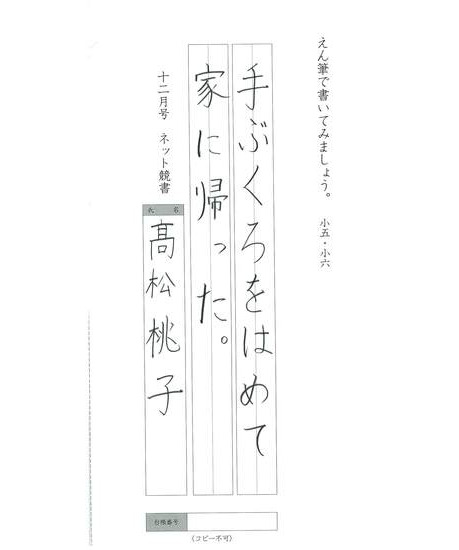 えん筆で書いてみましょう。 小五・小六
手ぶくろをはめて
家に帰った。
十二月号 ネット競書
氏 名
髙松桃子
台帳番号
(コピー不可)